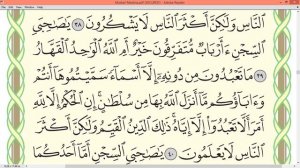 Mushaf Madina.pdf (SECURED) - Adobe Reader
ٱلنَّاسِ وَلَٰكِنَّ أَكۡثَرَ ٱلنَّاسِ لَا يَشۡكُرُونَ ٣٨ يَٰصَٰحِبَيِ
ٱلسِّجۡنِ ءَأَرۡبَابٞ مُّتَفَرِّقُونَ خَيۡرٌ أَمِ ٱللَّهُ ٱلۡوَٰحِدُ ٱلۡقَهَّارُ
٣٩ مَا تَعۡبُدُونَ مِن دُونِهِۦٓ إِلَّآ أَسۡمَآءٗ سَمَّيۡتُمُوهَآ أَنتُمۡ
وَءَابَآؤُكُم مَّآ أَنزَلَ ٱللَّهُ بِهَا مِن سُلۡطَٰنٍۚ إِنِ ٱلۡحُكۡمُ إِلَّا لِلَّهِ
أَمَرَ أَلَّا تَعۡبُدُوٓاْ إِلَّآ إِيَّاهُۚ ذَٰلِكَ ٱلدِّينُ ٱلۡقَيِّمُ وَلَٰكِنَّ أَكۡثَرَ
ٱلنَّاسِ لَا يَعۡلَمُونَ ٤٠ يَٰصَٰحِبَيِ ٱلسِّجۡنِ أَمَّآ أَحَدُكُمَا